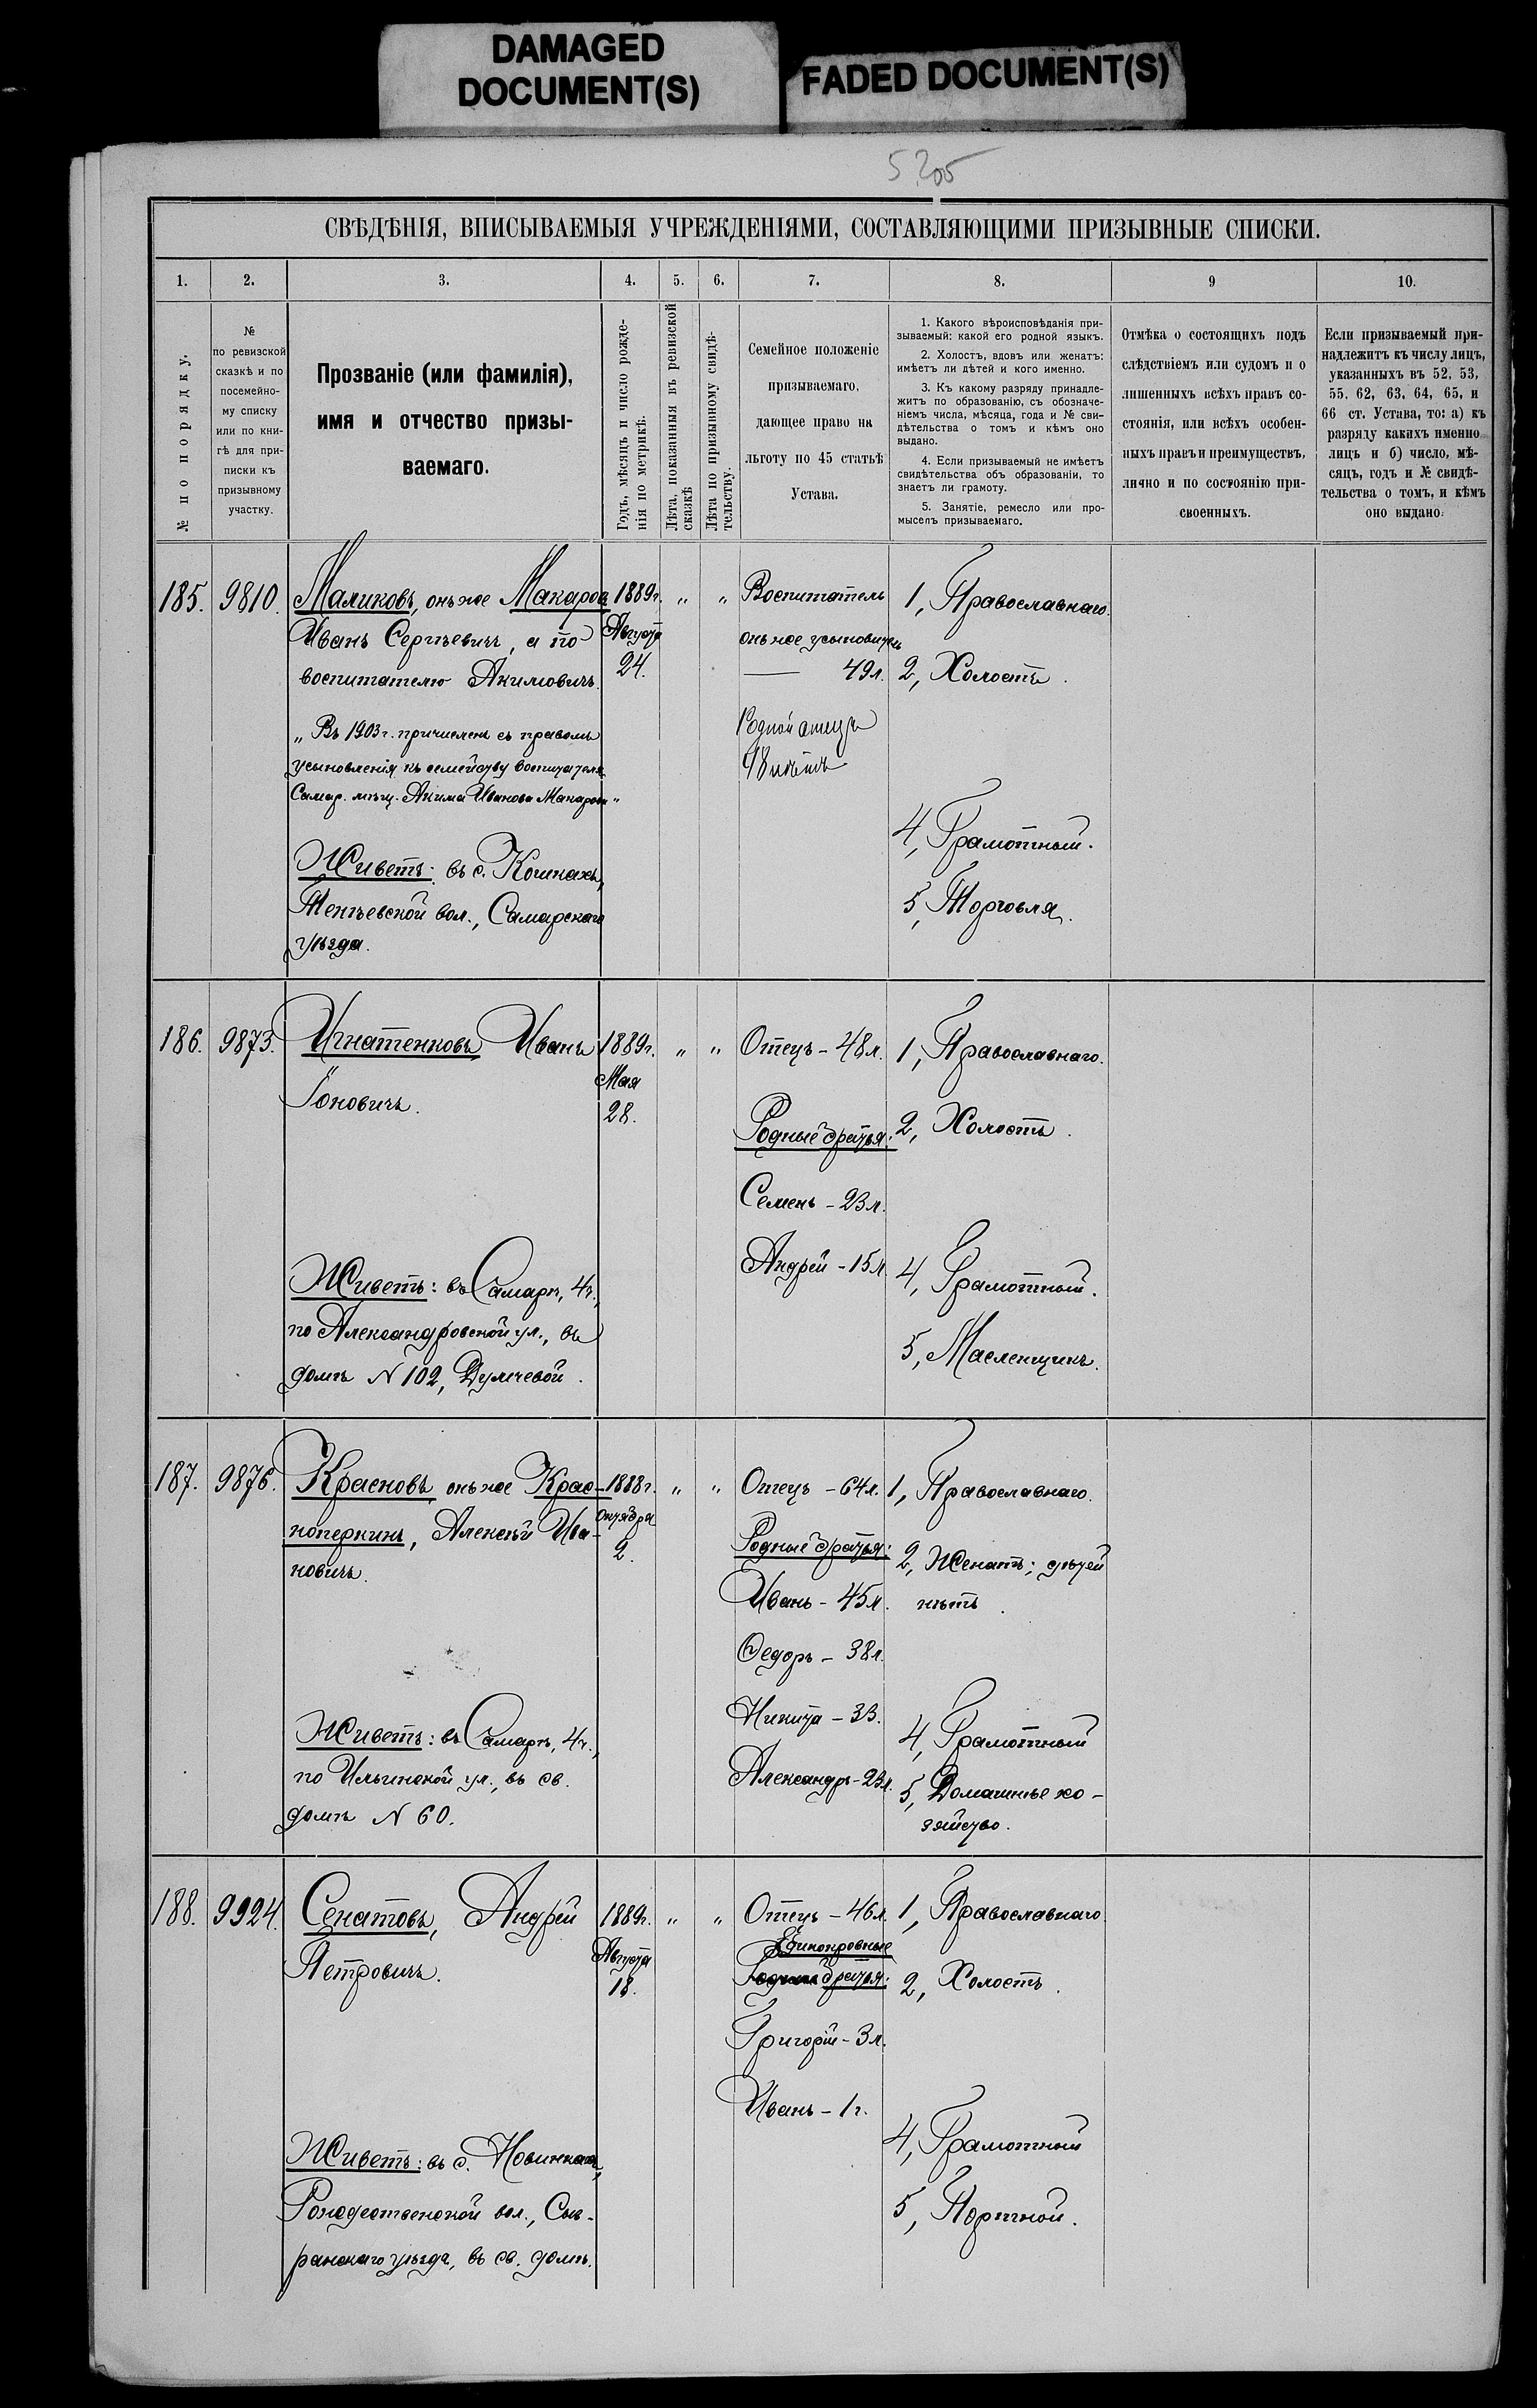 DAMAGED
DOCUMENT(S)
FADED DOCUMENT(S)
СВѢДѢНІЯ, ВПИСЫВАЕМЫЯ УЧРЕЖДЕНІЯМИ, СОСТАВЛЯЮЩИМИ ПРИЗЫВНЫЕ СПИСКИ.
1.
2.
3.
4.
5.
6.
7.
8.
9
10.
№ по порядку.
№
по ревизской
сказкѣ и по
посемейно-
му списку
или по кни-
гѣ для при-
писки къ
призывному
участку.
Прозваніе (или фамилія),
имя и отчество призы-
ваемаго.
Годъ, мѣсяцъ и число рожде-
нія по метрикѣ.
Лѣта, показанныя въ ревизской
сказкѣ
Лѣта по призывному свидѣ-
тельству.
Семейное положеніе
призываемаго,
дающее право на
льготу по 45 статьѣ
Устава.
1. Какого вѣроисповѣданія при-
зываемый: какой его родной языкъ.
2. Холостъ, вдовъ или женатъ:
имѣетъ ли дѣтей и кого именно.
3. Къ какому разряду принадле-
житъ по образованію, съ обозначе-
ніемъ числа, мѣсяца, года и № сви-
дѣтельства о томъ и кѣмъ оно
выдано.
4. Если призываемый не имѣетъ
свидѣтельства объ образованіи, то
знаетъ ли грамоту.
5. Занятіе, ремесло или про-
мыселъ призываемаго.
Отмѣка о состоящихъ подъ
слѣдствіемъ или судомъ и о
лишенныхъ всѣхъ правъ со-
стоянія, или всѣхъ особен-
ныхъ правъ и преимуществъ,
лично и по состоянію при-
своенныхъ.
Если призываемый при-
надлежитъ къ числу лицъ,
указанныхъ въ 52, 53,
55, 62, 63, 64, 65, и
66 ст. Устава, то: а) къ
разряду какихъ именно
лицъ и б) число, мѣ-
сяцъ, годъ и № свидѣ-
тельства о томъ, и кѣмъ
оно выдано.
185.
9810.
Маликовъ, онъ же Макаровъ
Иванъ Сергѣевичъ, а по
воспитателю Акимовичъ.
„Въ 1903 г. причисленъ съ правомъ
усыновленія къ семейству воспитателя
Самар. мѣщ. Акима Иванова Макарова"
Живетъ: въ с. Кошкахъ,
Самарскаго
уѣзда.
1889 г.
Августа
24.
"
"
Воспитатель
онъ же усыновитель
— 49 л.
Родной отецъ
48 лѣтъ
1, Православнаго.
2, Холостъ.
4, Грамотный.
5, Торговля.
186.
9873.
Игнатенковъ Иванъ
Іоновичъ.
Живетъ: въ Самарѣ, 4 ч.,
по Александровской ул., въ
домѣ № 102,
1889 г.
Мая
28.
"
"
Отецъ - 48 л.
Родные братья:
Семенъ - 23 л.
Андрей - 15 л.
1, Православнаго.
2, Холостъ.
4, Грамотный.
5, Масленщикъ.
187.
9876.
Красновъ онъ же Крас-
ноперкинъ, Алексѣй Ива-
новичъ.
Живетъ: въ Самарѣ, 4 ч.,
по Ильинской ул., въ св.
домѣ № 60.
1888 г.
Октября
2.
"
"
Отецъ - 64 л.
Родные братья:
Иванъ - 45 л.
Федоръ - 38 л.
Никита - 33.
Александръ - 23 л.
1, Православнаго.
2, Женатъ; дѣтей
нѣтъ.
4, Грамотный
5, Домашнѣе хо-
зяйство.
188.
9924.
Сенатовъ, Андрей
Петровичъ.
Живетъ: въ д. Новинкахъ,
Рождественской вол., Сыз-
ранскаго уѣзда, въ св. домѣ.
1889 г.
Августа
18.
"
"
Отецъ - 46 л.
Единокровные
Родные братья:
Григорій - 3 л.
Иванъ - 1 г.
1, Православнаго
2, Холостъ.
4, Грамотный
5, Портной.